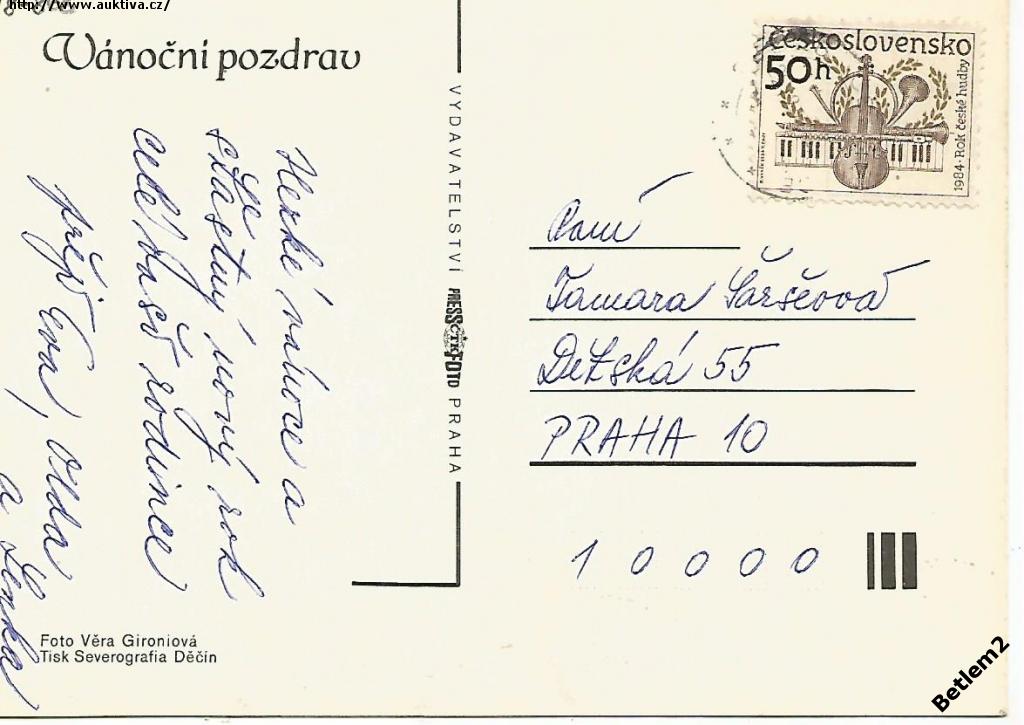 http://www.auktiva.cz/
Vánoční pozdrav
Hezké vánoce a
šťastný nový rok
celé vaší rodince
přejí Eva, Olda
a Lenka
VYDAVATELSTVÍ PRESSFOTO ČTK PRAHA
Československo
50h
1984 · Rok české hudby
Paní
Tamara Šaršeová
Dětská 55
PRAHA 10
10000
Foto Věra Gironiová
Tisk Severografia Děčín
Betlem2